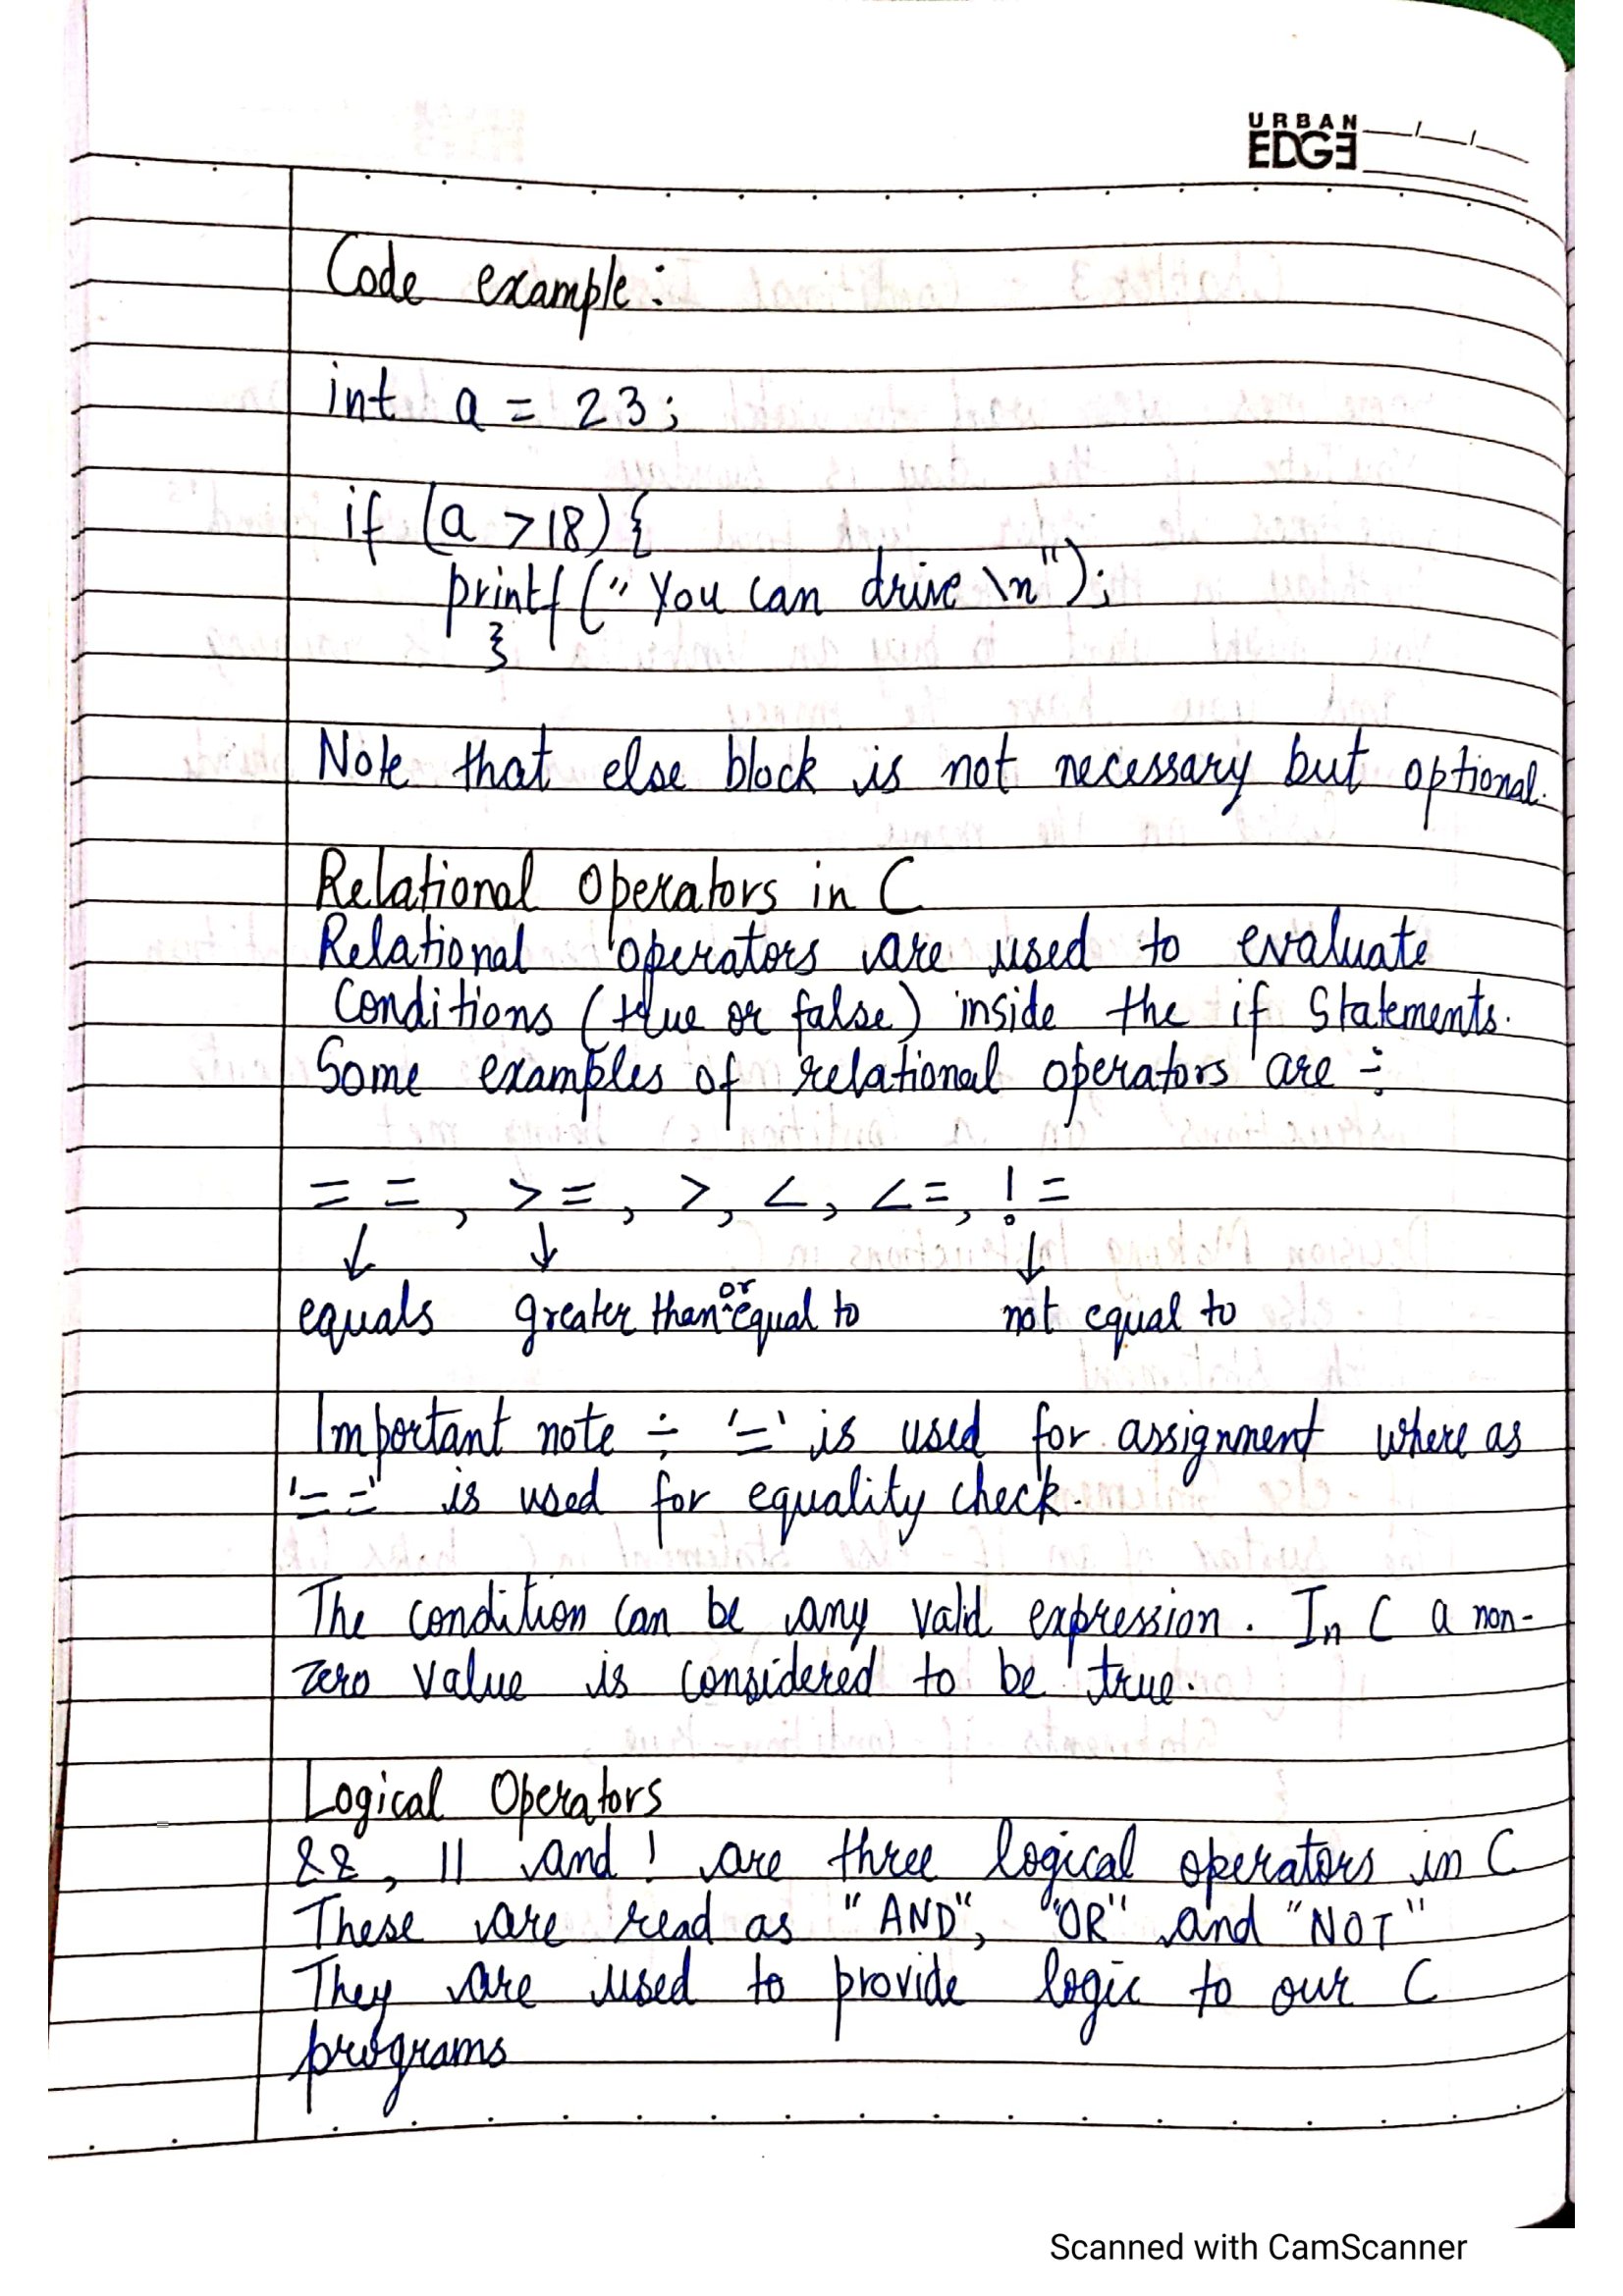 URBAN
EDGE
Code example:
int a = 23;
if (a >18) {
printf (" You can drive \n");
}
Note that else block is not necessary but optional.
Relational Operators in C
Relational operators are used to evaluate
Conditions (true or false) inside the if Statements.
Some examples of relational operators are ÷
= = , > = , > , < , < = , ! =
↓ ↓ ↓
equals greater than or equal to not equal to
Important note ÷ '=' is used for assignment where as
'= =' is used for equality check.
The condition can be any valid expression. In C a non-
zero value is considered to be true.
Logical Operators
&&, || and ! are three logical operators in C
These are read as "AND", "OR" and "NOT"
They are used to provide logic to our C
programs
Scanned with CamScanner